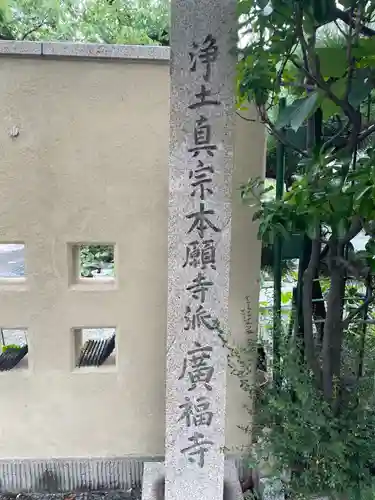 浄土真宗本願寺派廣福寺